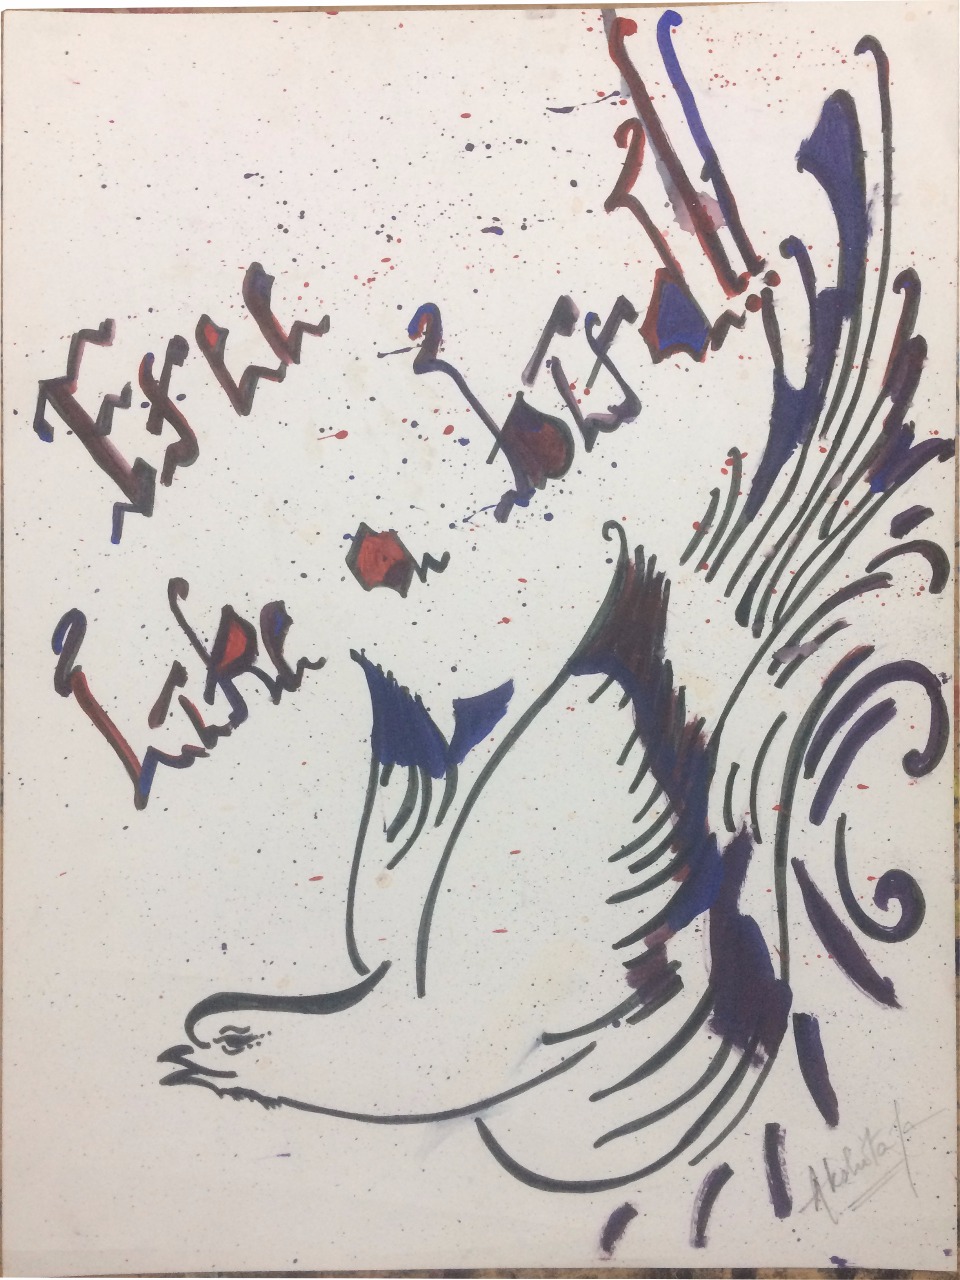 Free
Like a bird!!
Akshita